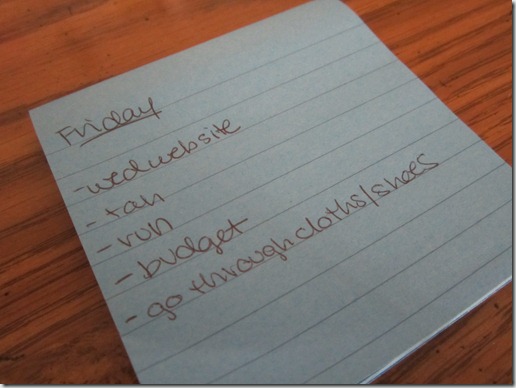 Friday
- wed website
- tan
- run
- budget
- go through cloths/shoes